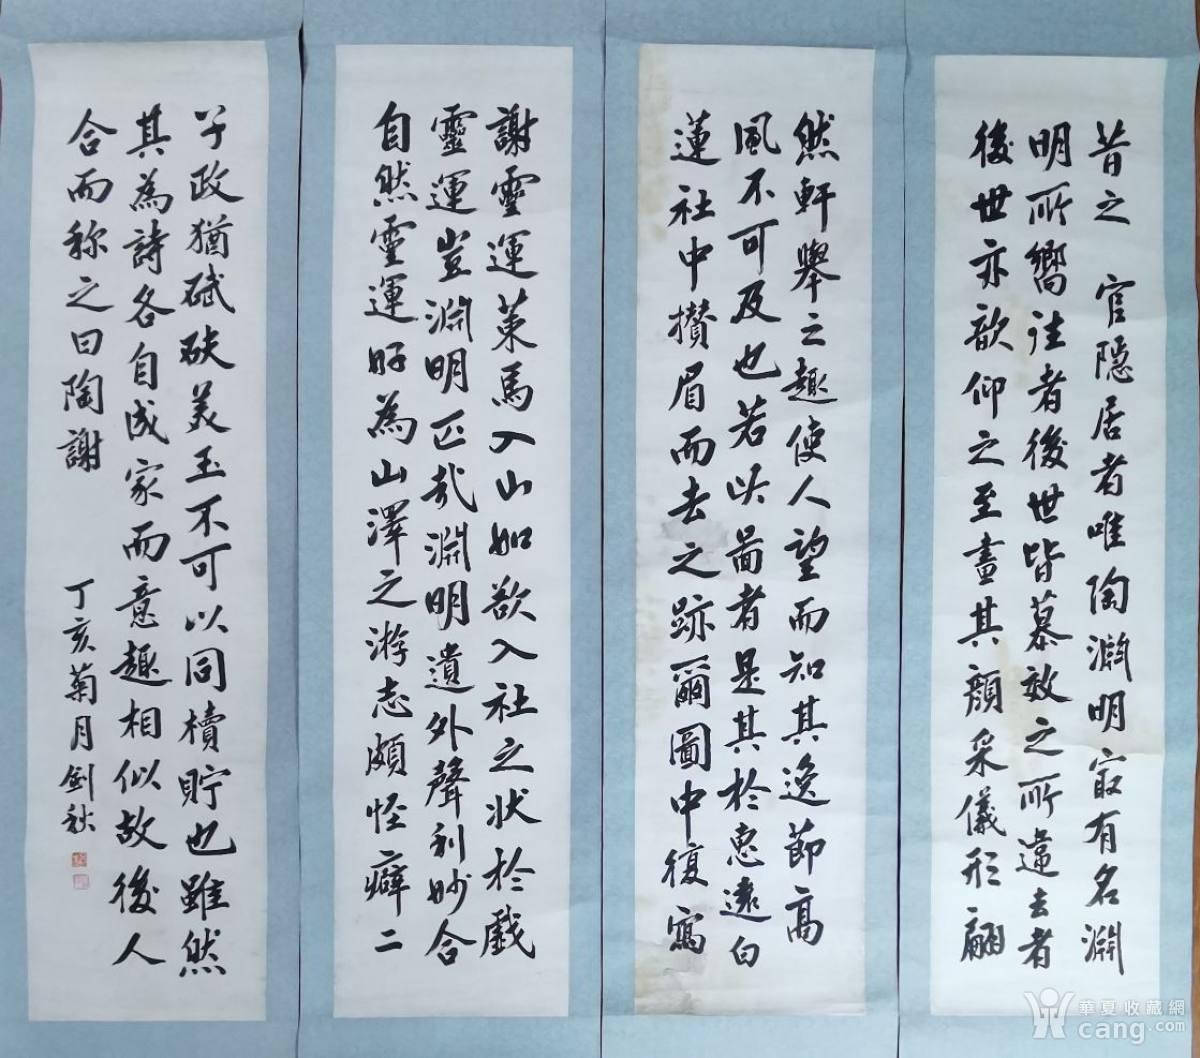 昔之 官隱居者唯陶淵明最有名淵
明所嚮往者後世皆慕效之所違去者
後世亦歆仰之至畫其顏采儀形翩
然軒舉之趣使人望而知其逸節高
風不可及也若此啚者是其於惠遠白
蓮社中攅眉而去之跡爾圖中復寫
謝靈運乘馬入山如欲入社之狀於戲
靈運豈淵明匹哉淵明遺外聲利妙合
自然靈運好為山澤之游志頗怪癖二
子政猶碔砆美玉不可以同櫝貯也雖然
其為詩各自成家而意趣相似故後人
合而称之曰陶謝
丁亥菊月劍秋
華夏收藏網
cang.com